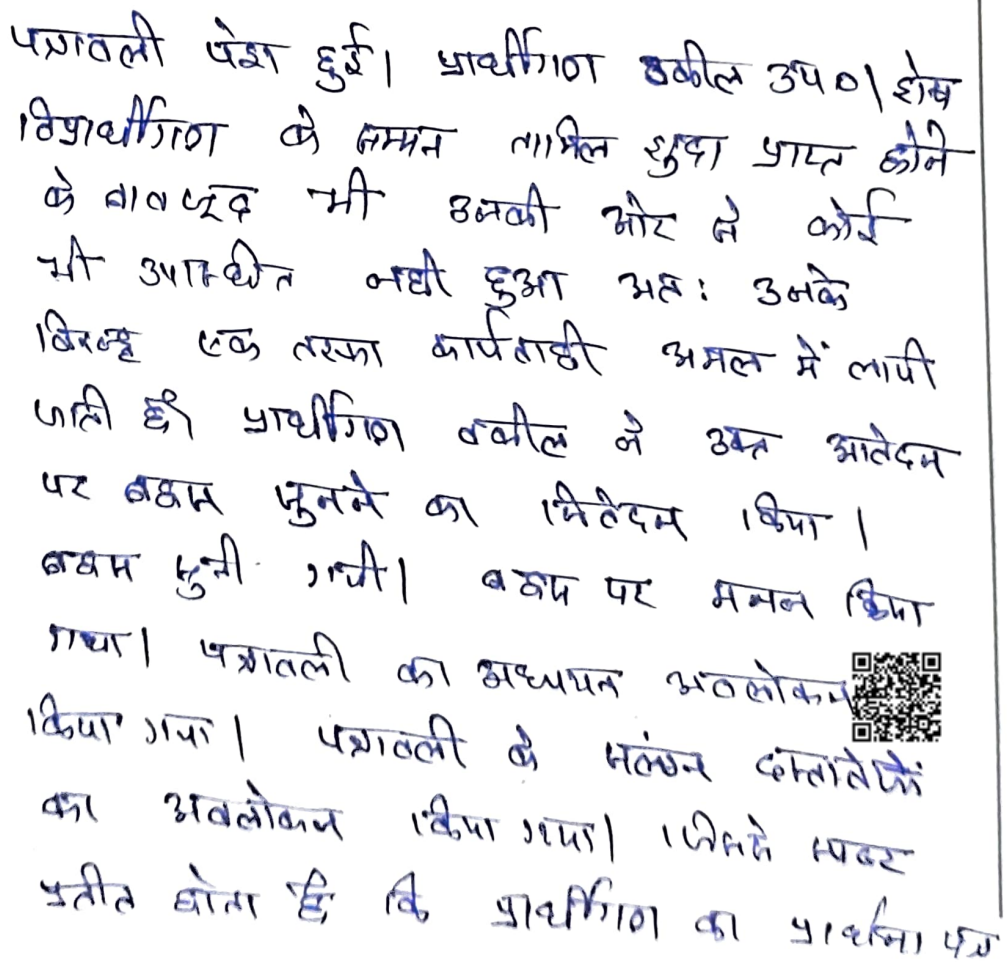 पत्रावली पेश हुई। प्रार्थीगण वकील उप०। शेष
विप्रार्थीगण के सम्मन तामिल शुदा प्राप्त होने
के बावजूद भी उनकी ओर से कोई
भी उपस्थित नही हुआ अतः उनके
विरुद्ध एक तरफा कार्यवाही अमल में लायी
जाती है। प्रार्थीगण वकील ने उक्त आवेदन
पर बहस सुनने का निवेदन किया।
बहस सुनी गयी। बहस पर मनन किया
गया। पत्रावली का अध्ययन अवलोकन
किया गया। पत्रावली के संलग्न दस्तावेजों
का अवलोकन किया गया। जिससे स्पष्ट
प्रतीत होता है कि प्रार्थीगण का प्रार्थना पत्र